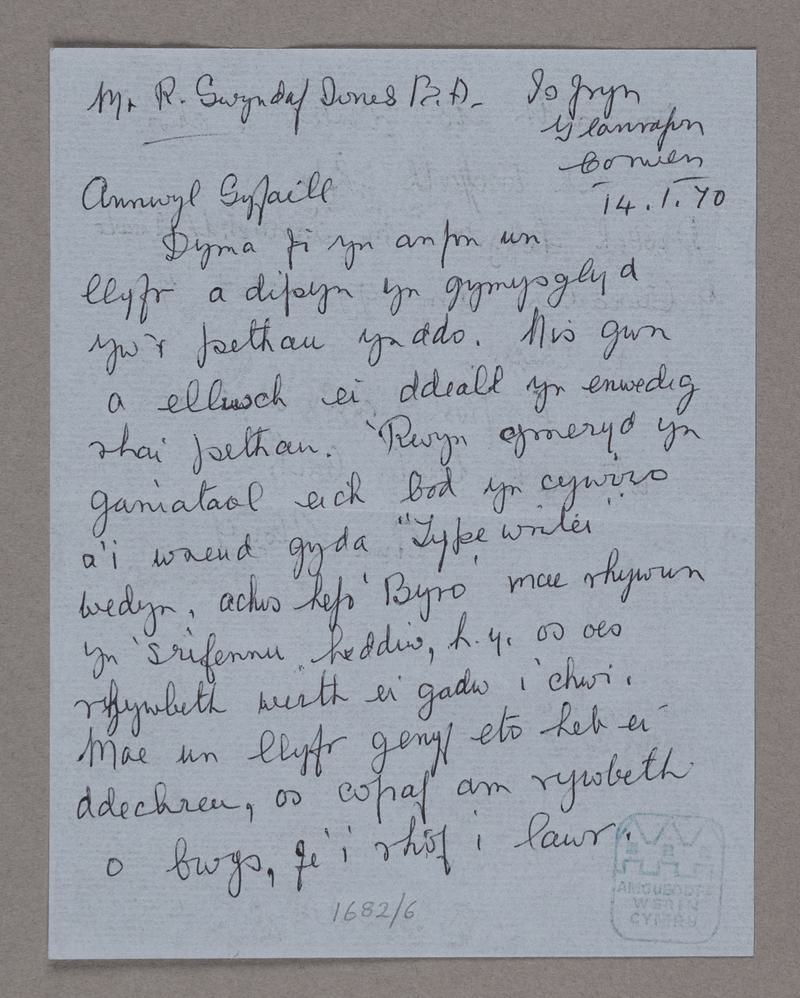 Mr R. Gwyndaf Jones B.A.
Is Fryn
Glanrafon
Corwen
14.1.70
Annwyl Gyfaill
Dyma fi yn anfon un
llyfr a dipyn yn gymysglyd
yw'r pethau ynddo. Nis gwn
a ellwch ei ddeall yn enwedig
rhai pethau. 'Rwyn cymeryd yn
ganiataol eich bod yn cywiro
a'i wneud gyda "Typewriter"
wedyn, achos hefo 'Byro' mae rhywun
yn 'srifennu heddiw, h.y. os oes
rhywbeth werth ei gadw i chwi.
Mae un llyfr genyf eto heb ei
ddechreu, os cofiaf am rywbeth
o bwys, fe'i rhôf i lawr.
AMGUEDDFA
WERIN
CYMRU
1682/6